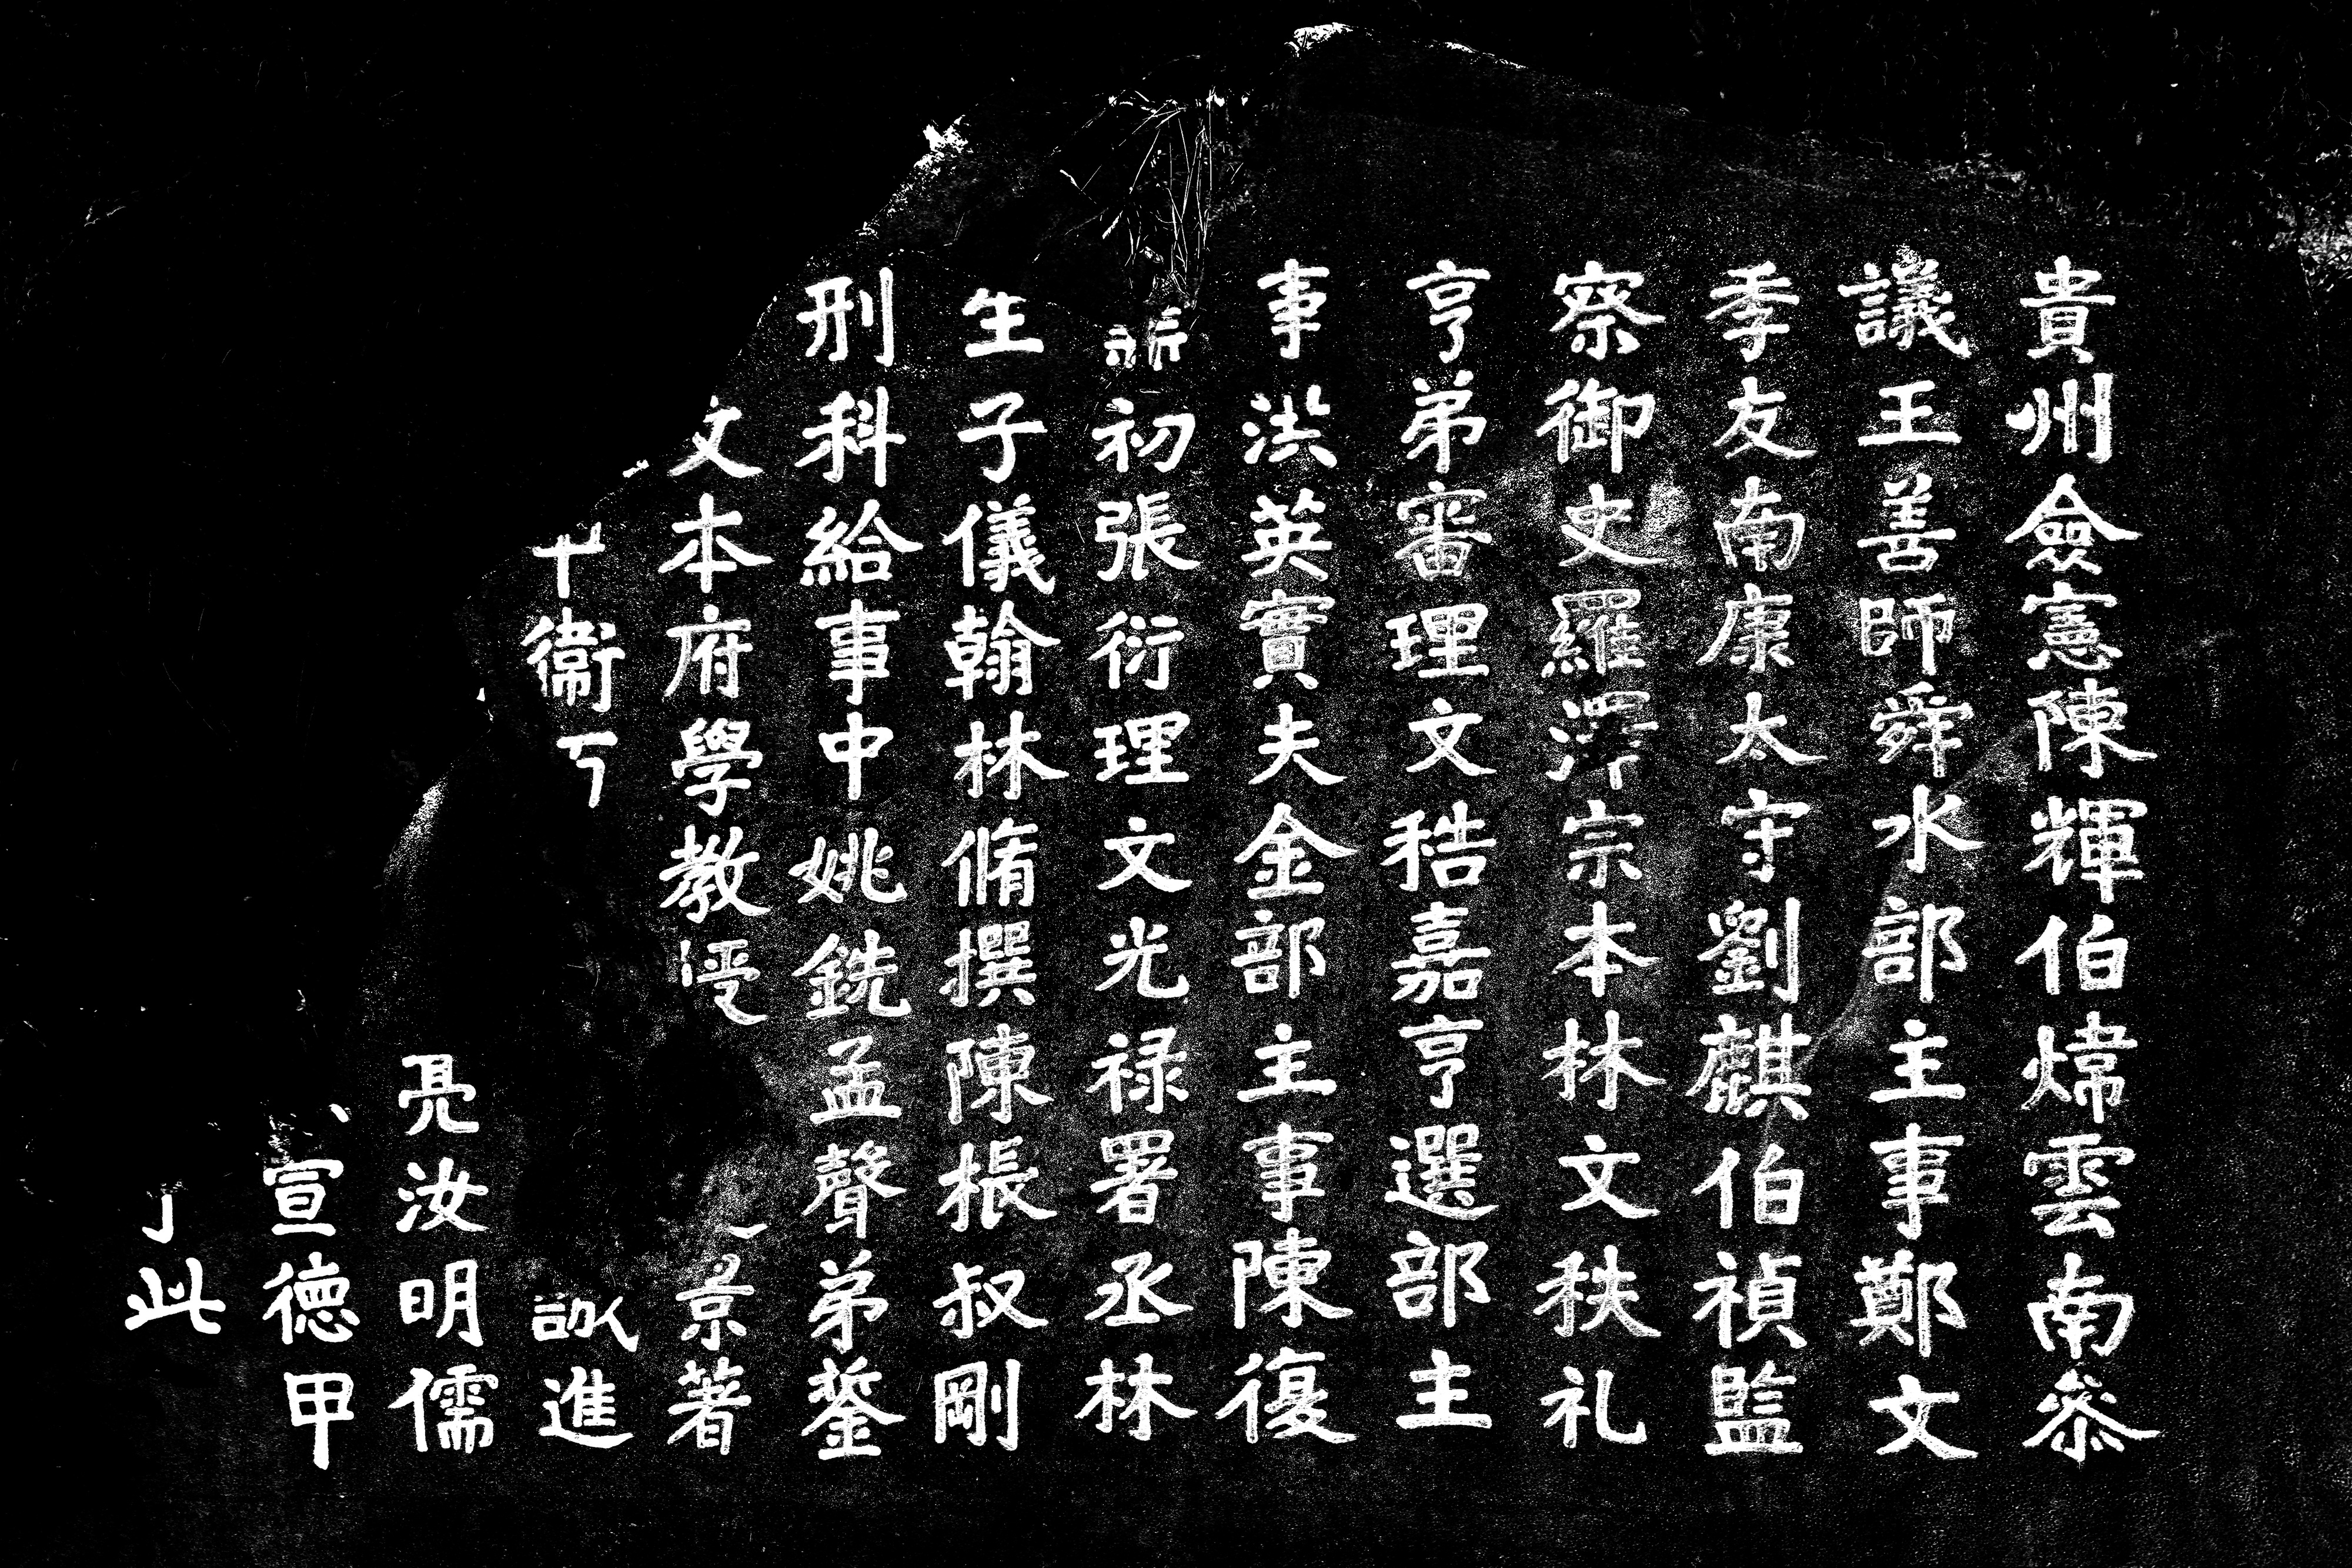 貴州僉憲陳輝伯煒雲南叅
議王善師舜水部主事鄭文
季友南康太守劉麒伯禎監
察御史羅澤宗本林文秩礼
亨弟審理文秸嘉亨選部主
事洪英實夫金部主事陳復
初張衍理文光禄署丞林
生子儀翰林脩撰陳棖叔剛
刑科給事中姚銑孟聲弟蓥
文本府學教
景著
衞
進
亮汝明儒
宣德甲
此